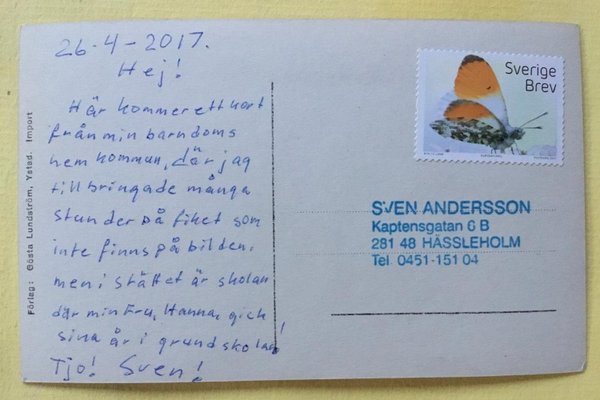 26-4-2017.
Hej!
Här kommer ett kort
från min barndoms
hemkommun, där jag
tillbringade många
stunder på fiket som
inte finns på bilden,
men i stället är skolan
där min Fru, Hanna, gick
sina år i grundskolan!
Tjo! Sven!
Förlag: Gösta Lundström, Ystad. Import
Sverige
Brev
SVEN ANDERSSON
Kaptensgatan 6 B
281 48 HÄSSLEHOLM
Tel. 0451-151 04